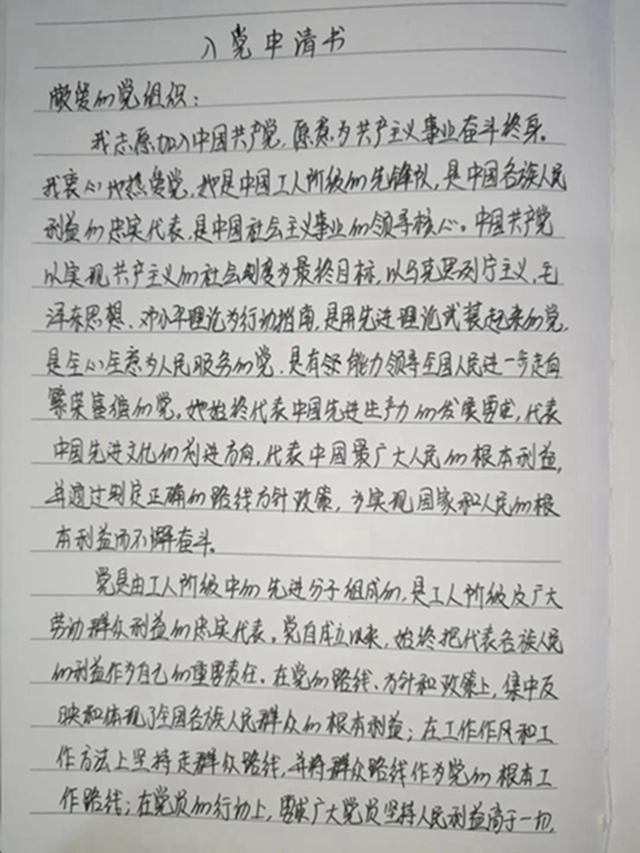 入党申请书
敬爱的党组织：
我志愿加入中国共产党，愿意为共产主义事业奋斗终身。
我衷心地热爱党，她是中国工人阶级的先锋队，是中国各族人民
利益的忠实代表，是中国社会主义事业的领导核心。中国共产党
以实现共产主义的社会制度为最终目标，以马克思列宁主义、毛
泽东思想、邓小平理论为行动指南，是用先进理论武装起来的党，
是全心全意为人民服务的党，是有能力领导全国人民进一步走向
繁荣富强的党。她始终代表中国先进生产力的发展要求，代表
中国先进文化的前进方向，代表中国最广大人民的根本利益，
并通过制定正确的路线方针政策，为实现国家和人民的根
本利益而不懈奋斗。
党是由工人阶级中的先进分子组成的，是工人阶级及广大
劳动群众利益的忠实代表。党自成立以来，始终把代表各族人民
的利益作为自己的重要责任。在党的路线、方针和政策上，集中反
映和体现了全国各族人民群众的根本利益；在工作作风和工
作方法上坚持走群众路线，并将群众路线作为党的根本工
作路线；在党员的行动上，要求广大党员坚持人民利益高于一切，